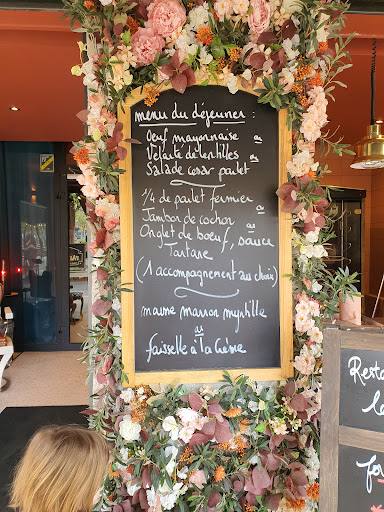 menu du déjeuner :
Oeuf mayonnaise ou
Velouté de lentilles ou
Salade cesar poulet
1/4 de poulet fermier ou
Jambon de cochon ou
Onglet de boeuf, sauce
Tartare
(1 accompagnement au choix)
mousse marron myrtille
ou
faisselle à la crème
Resta